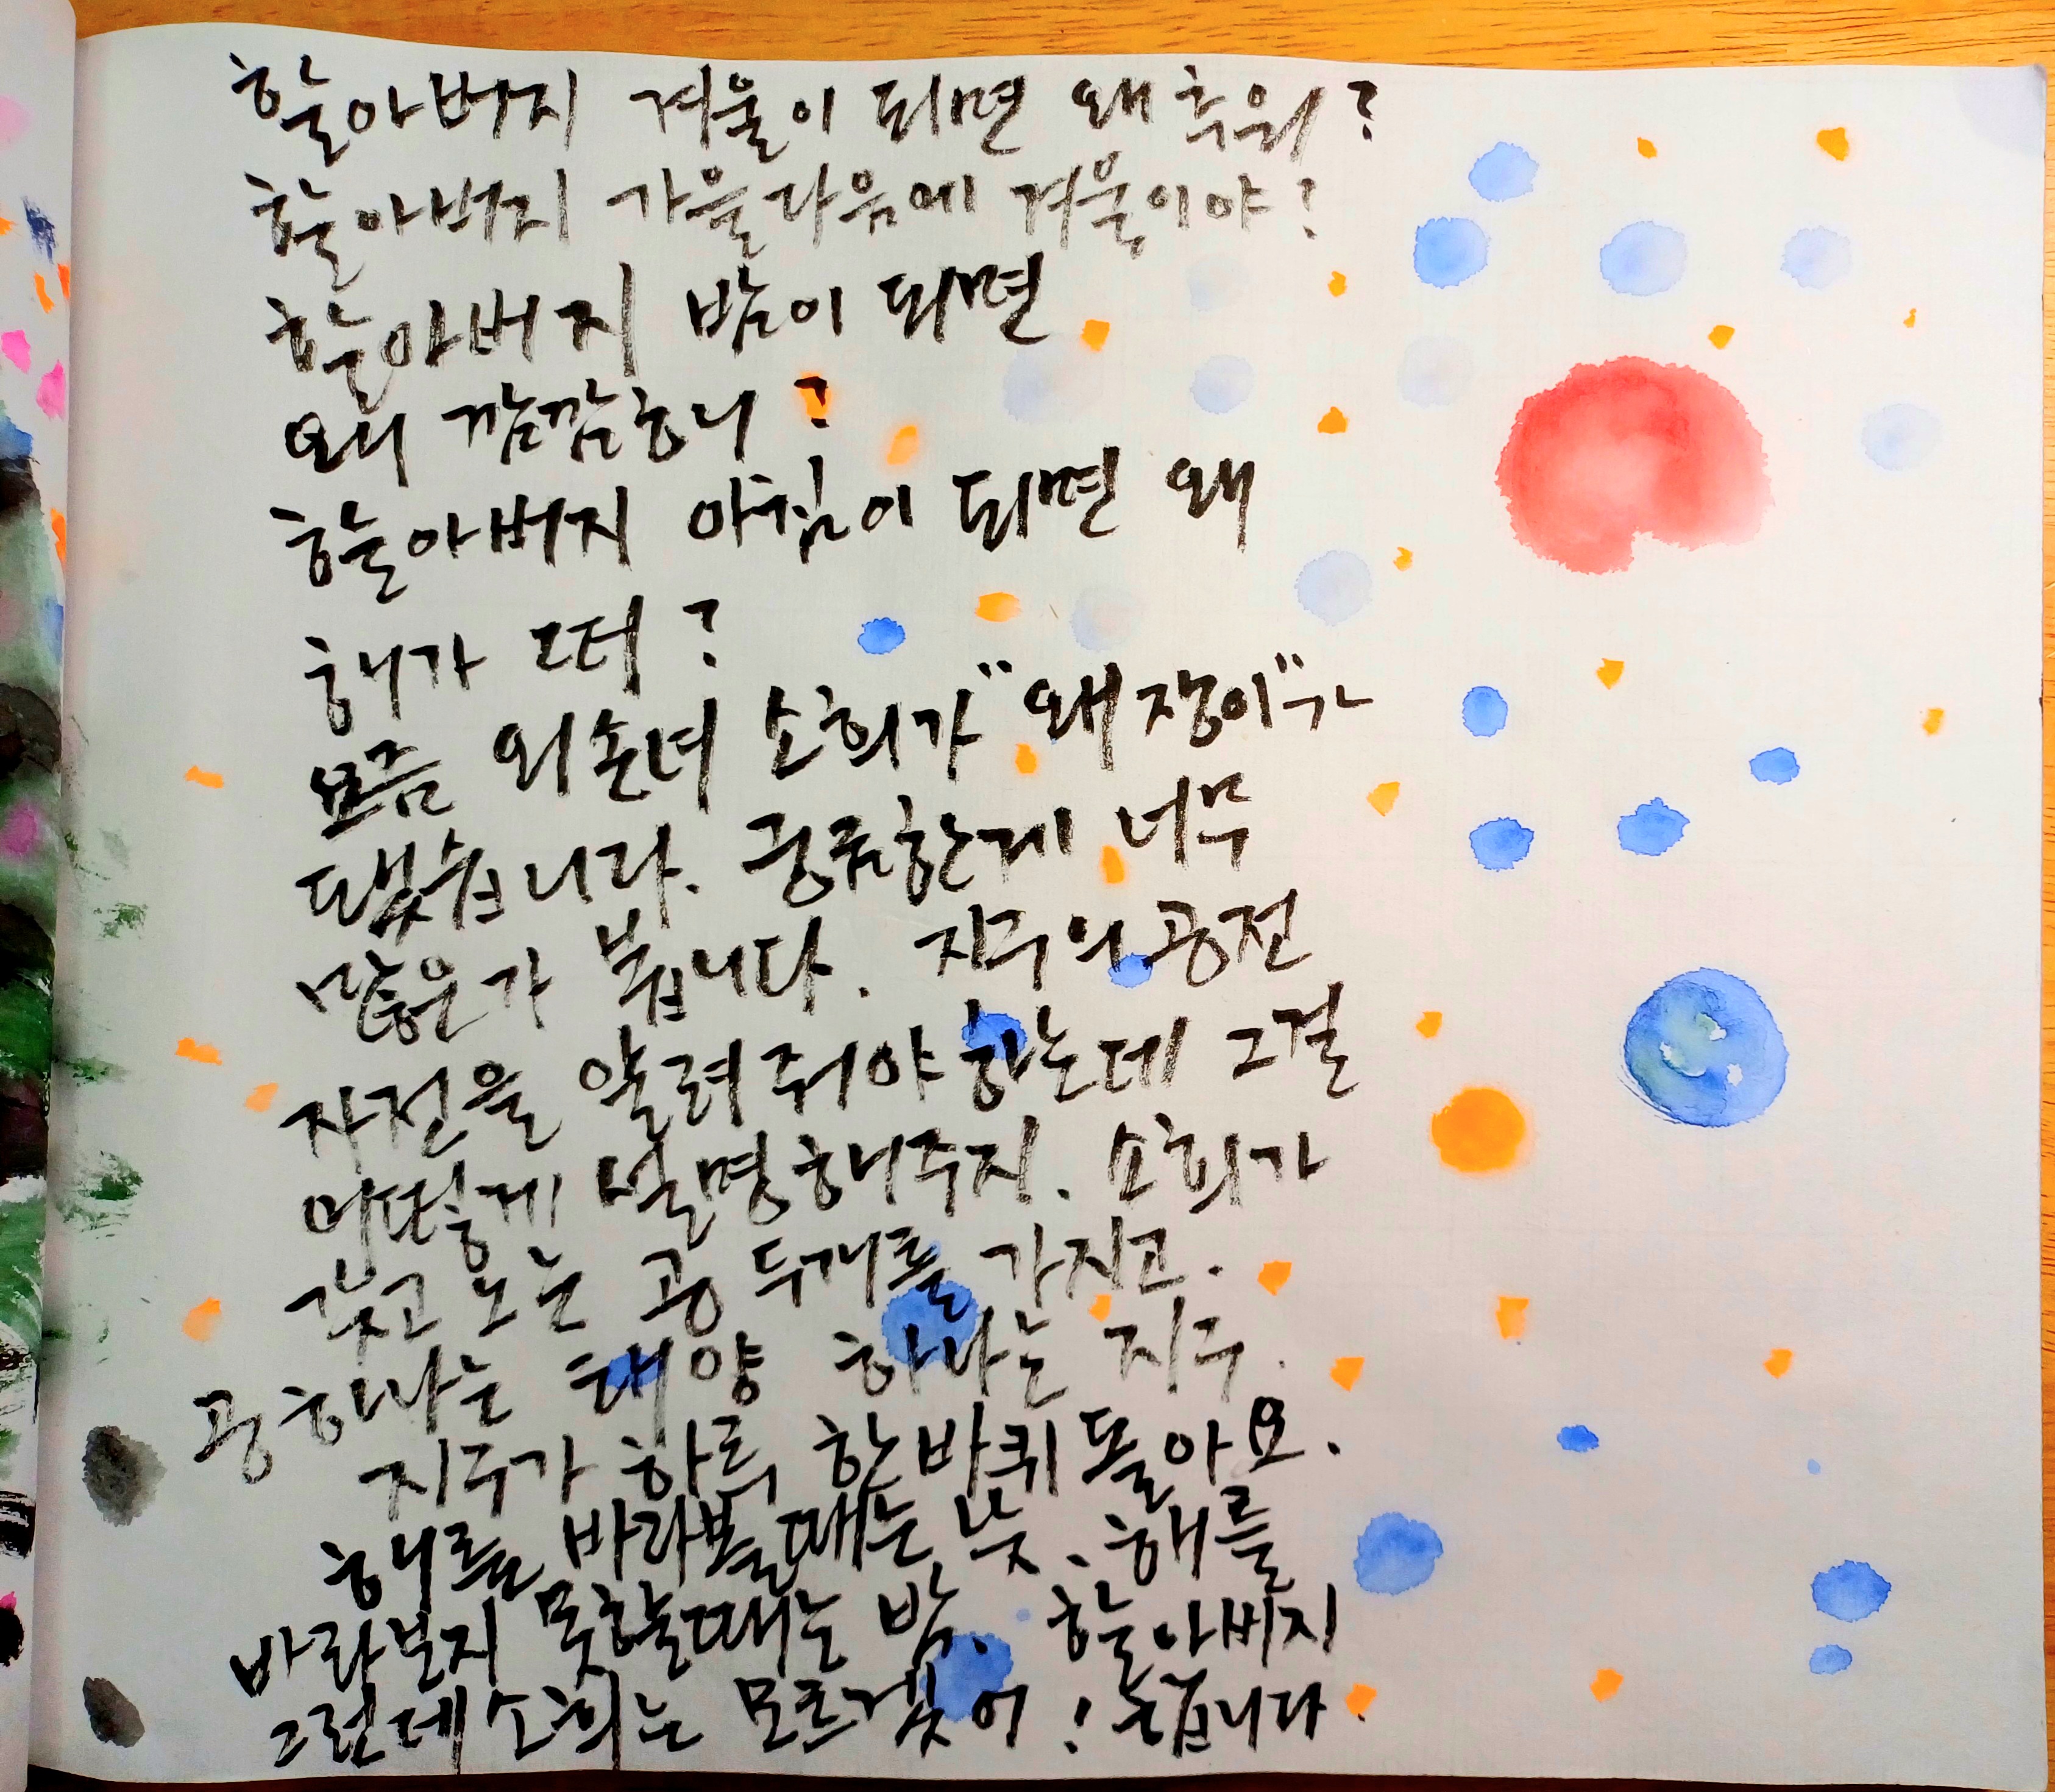 할아버지 겨울이 되면 왜 추워?
할아버지 가을다음에 겨울이야?
할아버지 밤이 되면
왜 깜깜하니?
할아버지 아침이 되면 왜
해가 떠?
요즘 외손녀 소희가 "왜쟁이"가
됐습니다. 궁금한게 너무
많은가 봅니다. 지구의 공전
자전을 알려줘야 하는데 그걸
어떻게 설명해주지. 소희가
갖고 노는 공 두개를 가지고.
공하나는 태양 하나는 지구.
지구가 하루 한바퀴 돌아요.
해를 바라볼때는 낮, 해를
바라보지 못할때는 밤. 할아버지
그런데 소희는 모르겠어!